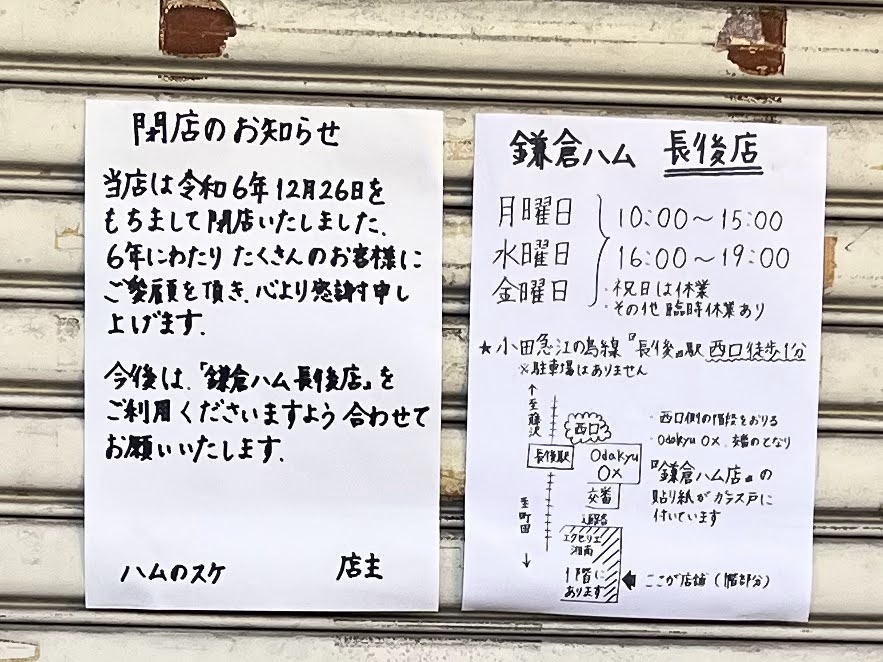 閉店のお知らせ
当店は令和6年12月26日を
もちまして閉店いたしました。
6年にわたり たくさんのお客様に
ご愛顧を頂き、心より感謝申し
上げます。
今後は、『鎌倉ハム長後店』を
ご利用くださいますよう合わせて
お願いいたします。
ハムのスケ 店主
鎌倉ハム 長後店
月曜日
水曜日
金曜日
10:00～15:00
16:00～19:00
・祝日は休業
・その他臨時休業あり
★小田急江の島線『長後』駅 西口徒歩1分
※駐車場はありません
↑至藤沢
西口
長後駅
Odakyu
OX
交番
至町田↓
エクセリエ
湘南
1階に
あります
・西口側の階段をおりる
・Odakyu OX、交番のとなり
『鎌倉ハム店』の
貼り紙がガラス戸に
付いています
←ここが店舗(1階部分)